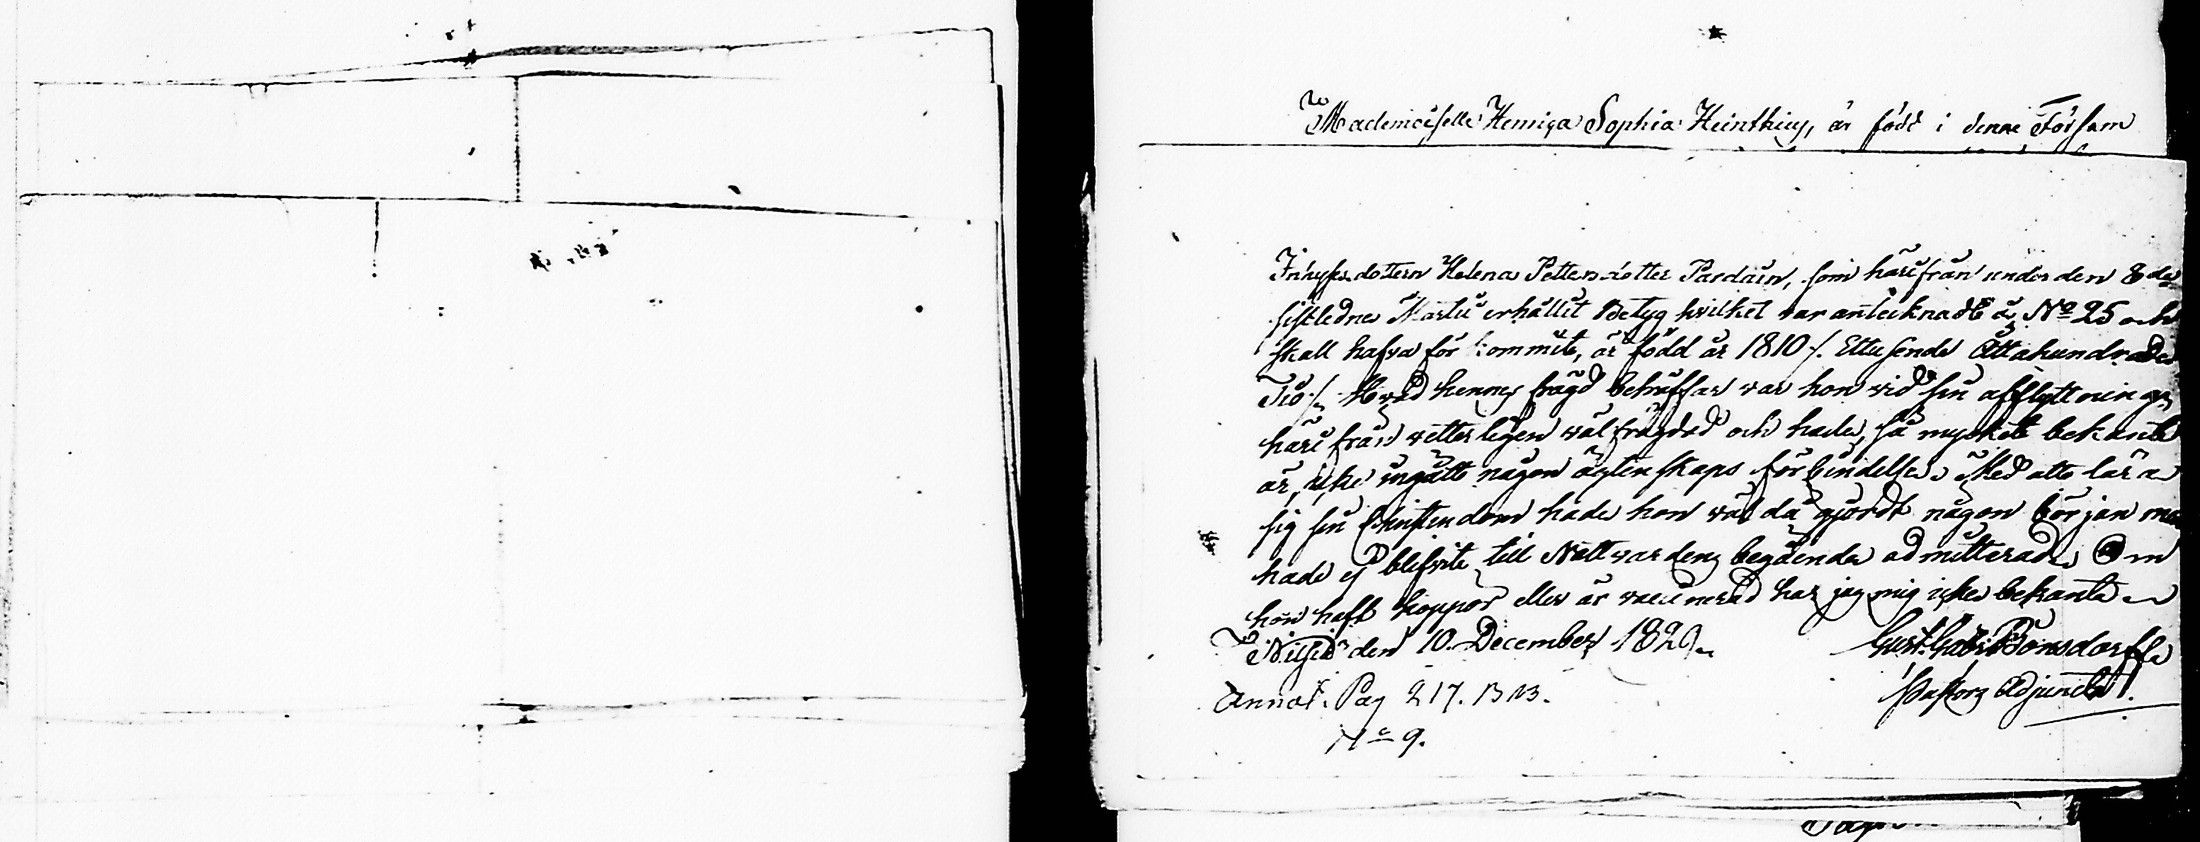 Mademoiselle Henrica Sophia Heinthiey, är född i denna Försam
Inhyses dottern Helena Petters dotter Pardain, som härifrån under den 8de
sistledne Martii erhållit Betyg hvilket var antecknadt af No 25 och
skall hafva för kommit, är född år 1810 /. Ettusende Åttahundrade
Tio /. Hvad hennes frägd beträffar var hon vid sin afflyttning
härifrån vetterligen väl frägdad och hade, så myckit bekant
är, icke ingått någon ägtenskaps förbindelse. Med att lära
sig sin Christendom hade hon väl då gjordt någon början men
hade ej blifvit till Nattvardens begående admitterad. Om
hon haft koppor eller är vaccinerad har jag mig icke bekant
Nilsiä den 10 December 182
Gust. Gabr. Bonsdorff
Pastors Adjunct.
Annot. Pag 217.
No 9.